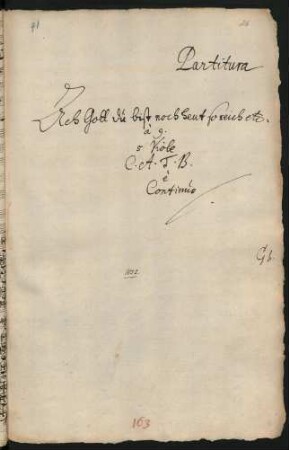 71
Partitura
Ach Gott du bist noch heut so reich etc.
à 9.
5 Viole
C. A. T. B.
è
Continuo
G b.
163